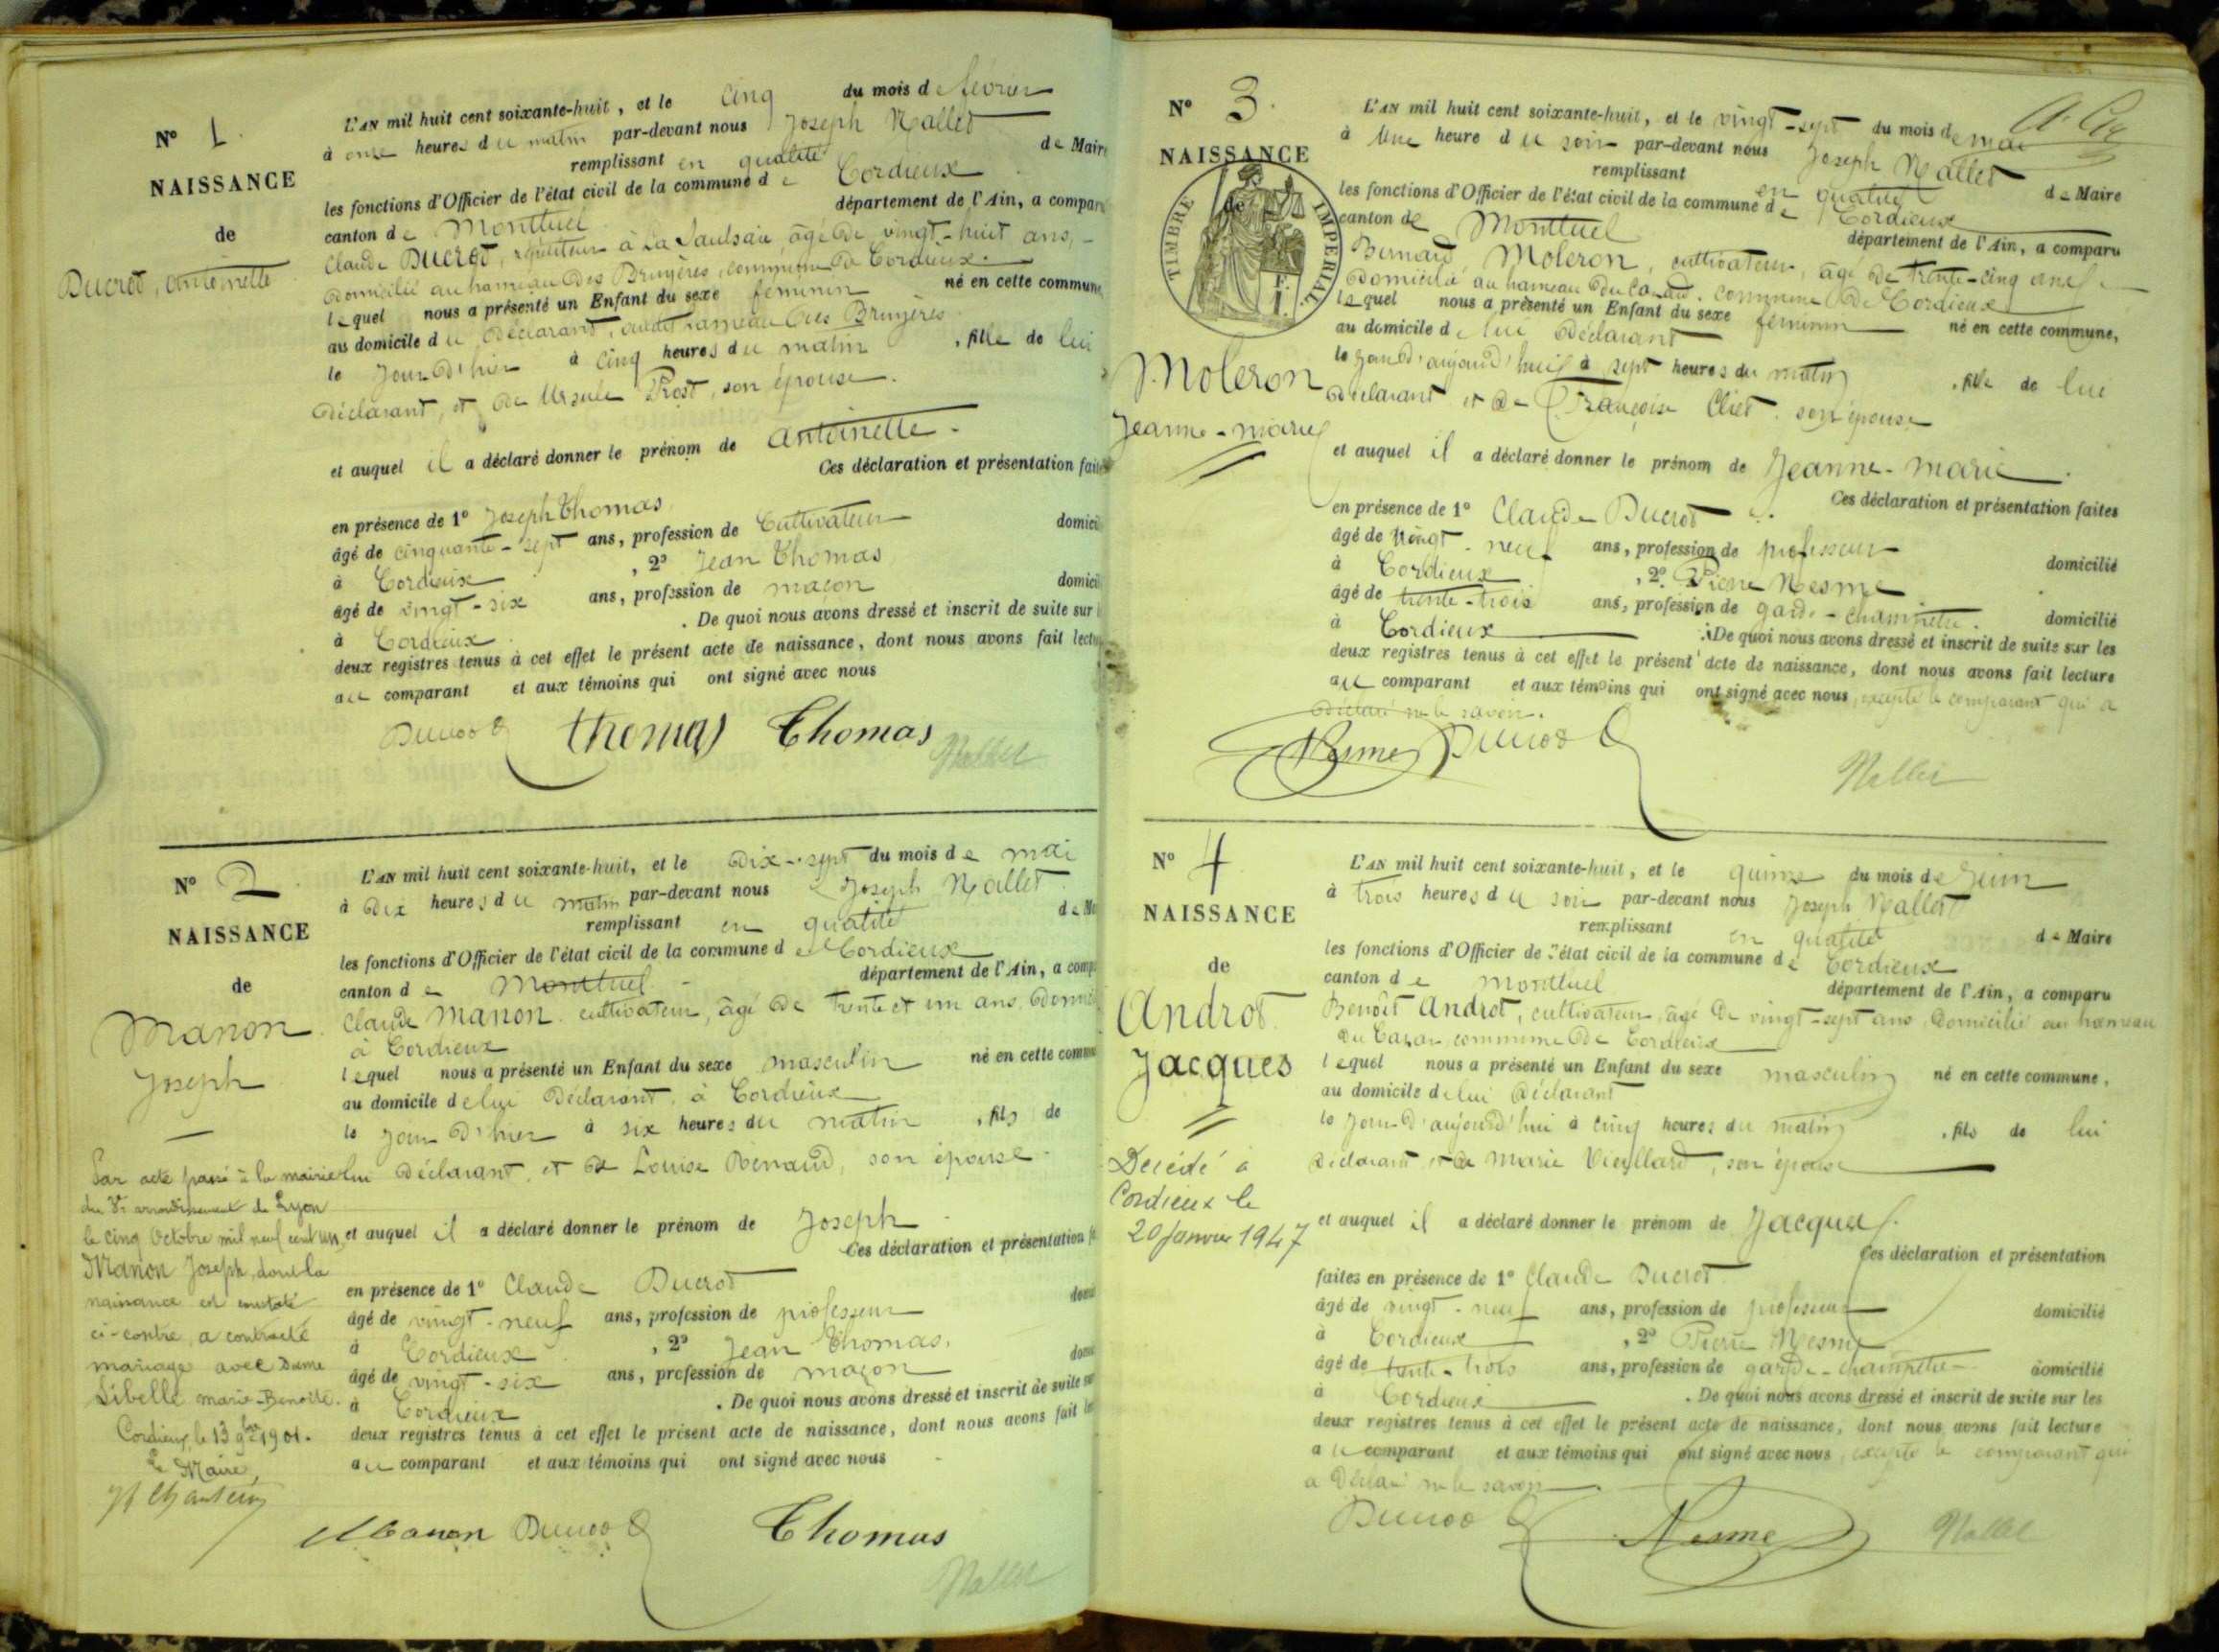 N° 1.
NAISSANCE
de
Ducrot, Antoinette
L'AN mil huit cent soixante-huit, et le cinq du mois de février
à onze heures du matin par-devant nous Joseph Nallet
remplissant en qualité de Maire
les fonctions d'Officier de l'état civil de la commune de Cordieux
canton de Montluel département de l'Ain, a compar
Claude Ducrot, à La Saulsaie, âgé de vingt-huit ans,
domicilié au hameau des Bruyères, commune de Cordieux.
lequel nous a présenté un Enfant du sexe féminin né en cette commune,
au domicile du déclarant, audit hameau des Bruyères
le jour d'hier à cinq heures du matin , fille de lui
déclarant, et de Ursule Prost, son épouse.
et auquel il a déclaré donner le prénom de Antoinette.
Ces déclaration et présentation faites
en présence de 1° Joseph Thomas,
âgé de cinquante-sept ans, profession de Cultivateur domici
à Cordieux , 2° Jean Thomas
âgé de vingt-six ans, profession de maçon domici
à Cordieux . De quoi nous avons dressé et inscrit de suite sur
deux registres tenus à cet effet le présent acte de naissance, dont nous avons fait lectu
au comparant et aux témoins qui ont signé avec nous
Ducrot Thomas Thomas Nallet
N° 2
NAISSANCE
de
Manon
Joseph
Par acte passé à la mairie
du arrondissement de Lyon
le cinq Octobre mil neuf cent un
Manon Joseph, dont la
naissance est constatée
ci-contre, a contracté
mariage avec Dame
Libelle Marie-Benoite.
Cordieux, le 13 9bre 1901.
Le Maire,
L'AN mil huit cent soixante-huit, et le dix-sept du mois de mai
à dix heures du matin par-devant nous Joseph Nallet
remplissant en qualité de Ma
les fonctions d'Officier de l'état civil de la commune de Cordieux
canton de Montluel département de l'Ain, a comp
Claude Manon, cultivateur, âgé de trente et un ans, domici
à Cordieux
lequel nous a présenté un Enfant du sexe masculin né en cette commu
au domicile de lui déclarant, à Cordieux
le jour d'hier à six heures du matin , fils de
lui déclarant, et de Louise Renaud, son épouse.
et auquel il a déclaré donner le prénom de Joseph
Ces déclaration et présentation f
en présence de 1° Claude Ducrot
âgé de vingt-neuf ans, profession de professeur domi
à Cordieux , 2° Jean Thomas,
âgé de vingt-six ans, profession de maçon domi
à Cordieux . De quoi nous avons dressé et inscrit de suite sur
deux registres tenus à cet effet le présent acte de naissance, dont nous avons fait lec
au comparant et aux témoins qui ont signé avec nous
Manon Ducrot Thomas
Nallet
N° 3.
NAISSANCE
de
TIMBRE IMPERIAL
Moleron
Jeanne-Marie
L'AN mil huit cent soixante-huit, et le vingt-sept du mois de mai
à une heure du soir par-devant nous Joseph Nallet
remplissant en qualité de Maire
les fonctions d'Officier de l'état civil de la commune de Cordieux
canton de Montluel département de l'Ain, a comparu
Bernard Moleron, cultivateur, âgé de trente-cinq ans
domicilié au hameau du commune de Cordieux
lequel nous a présenté un Enfant du sexe féminin né en cette commune,
au domicile de lui déclarant
le jour d'aujourd'hui à sept heures du matin , fille de lui
déclarant et de Françoise Cliet, son épouse
et auquel il a déclaré donner le prénom de Jeanne-Marie.
Ces déclaration et présentation faites
en présence de 1° Claude Ducrot
âgé de vingt-neuf ans, profession de professeur domicilié
à Cordieux , 2° Pierre Nesme
âgé de trente-trois ans, profession de garde-champêtre. domicilié
à Cordieux . De quoi nous avons dressé et inscrit de suite sur les
deux registres tenus à cet effet le présent acte de naissance, dont nous avons fait lecture
au comparant et aux témoins qui ont signé avec nous, excepté le comparant qui a
déclaré ne le savoir.
Nesme Ducrot Nallet
N° 4
NAISSANCE
de
Androt
Jacques
Décédé à
Cordieux le
20 Janvier 1947
L'AN mil huit cent soixante-huit, et le quinze du mois de Juin
à trois heures du soir par-devant nous Joseph Nallet
remplissant en qualité de Maire
les fonctions d'Officier de l'état civil de la commune de Cordieux
canton de Montluel département de l'Ain, a comparu
Benoît Androt, cultivateur, âgé de vingt-sept ans, domicilié au hameau
du commune de Cordieux
lequel nous a présenté un Enfant du sexe masculin né en cette commune,
au domicile de lui déclarant
le jour d'aujourd'hui à cinq heures du matin , fils de lui
déclarant, et de Marie Vieillard, son épouse
et auquel il a déclaré donner le prénom de Jacques.
Ces déclaration et présentation
faites en présence de 1° Claude Ducrot
âgé de vingt-neuf ans, profession de professeur domicilié
à Cordieux , 2° Pierre Nesme
âgé de trente-trois ans, profession de garde-champêtre domicilié
à Cordieux . De quoi nous avons dressé et inscrit de suite sur les
deux registres tenus à cet effet le présent acte de naissance, dont nous avons fait lecture
au comparant et aux témoins qui ont signé avec nous, excepté le comparant qui
a déclaré ne le savoir
Ducrot Nesme Nallet